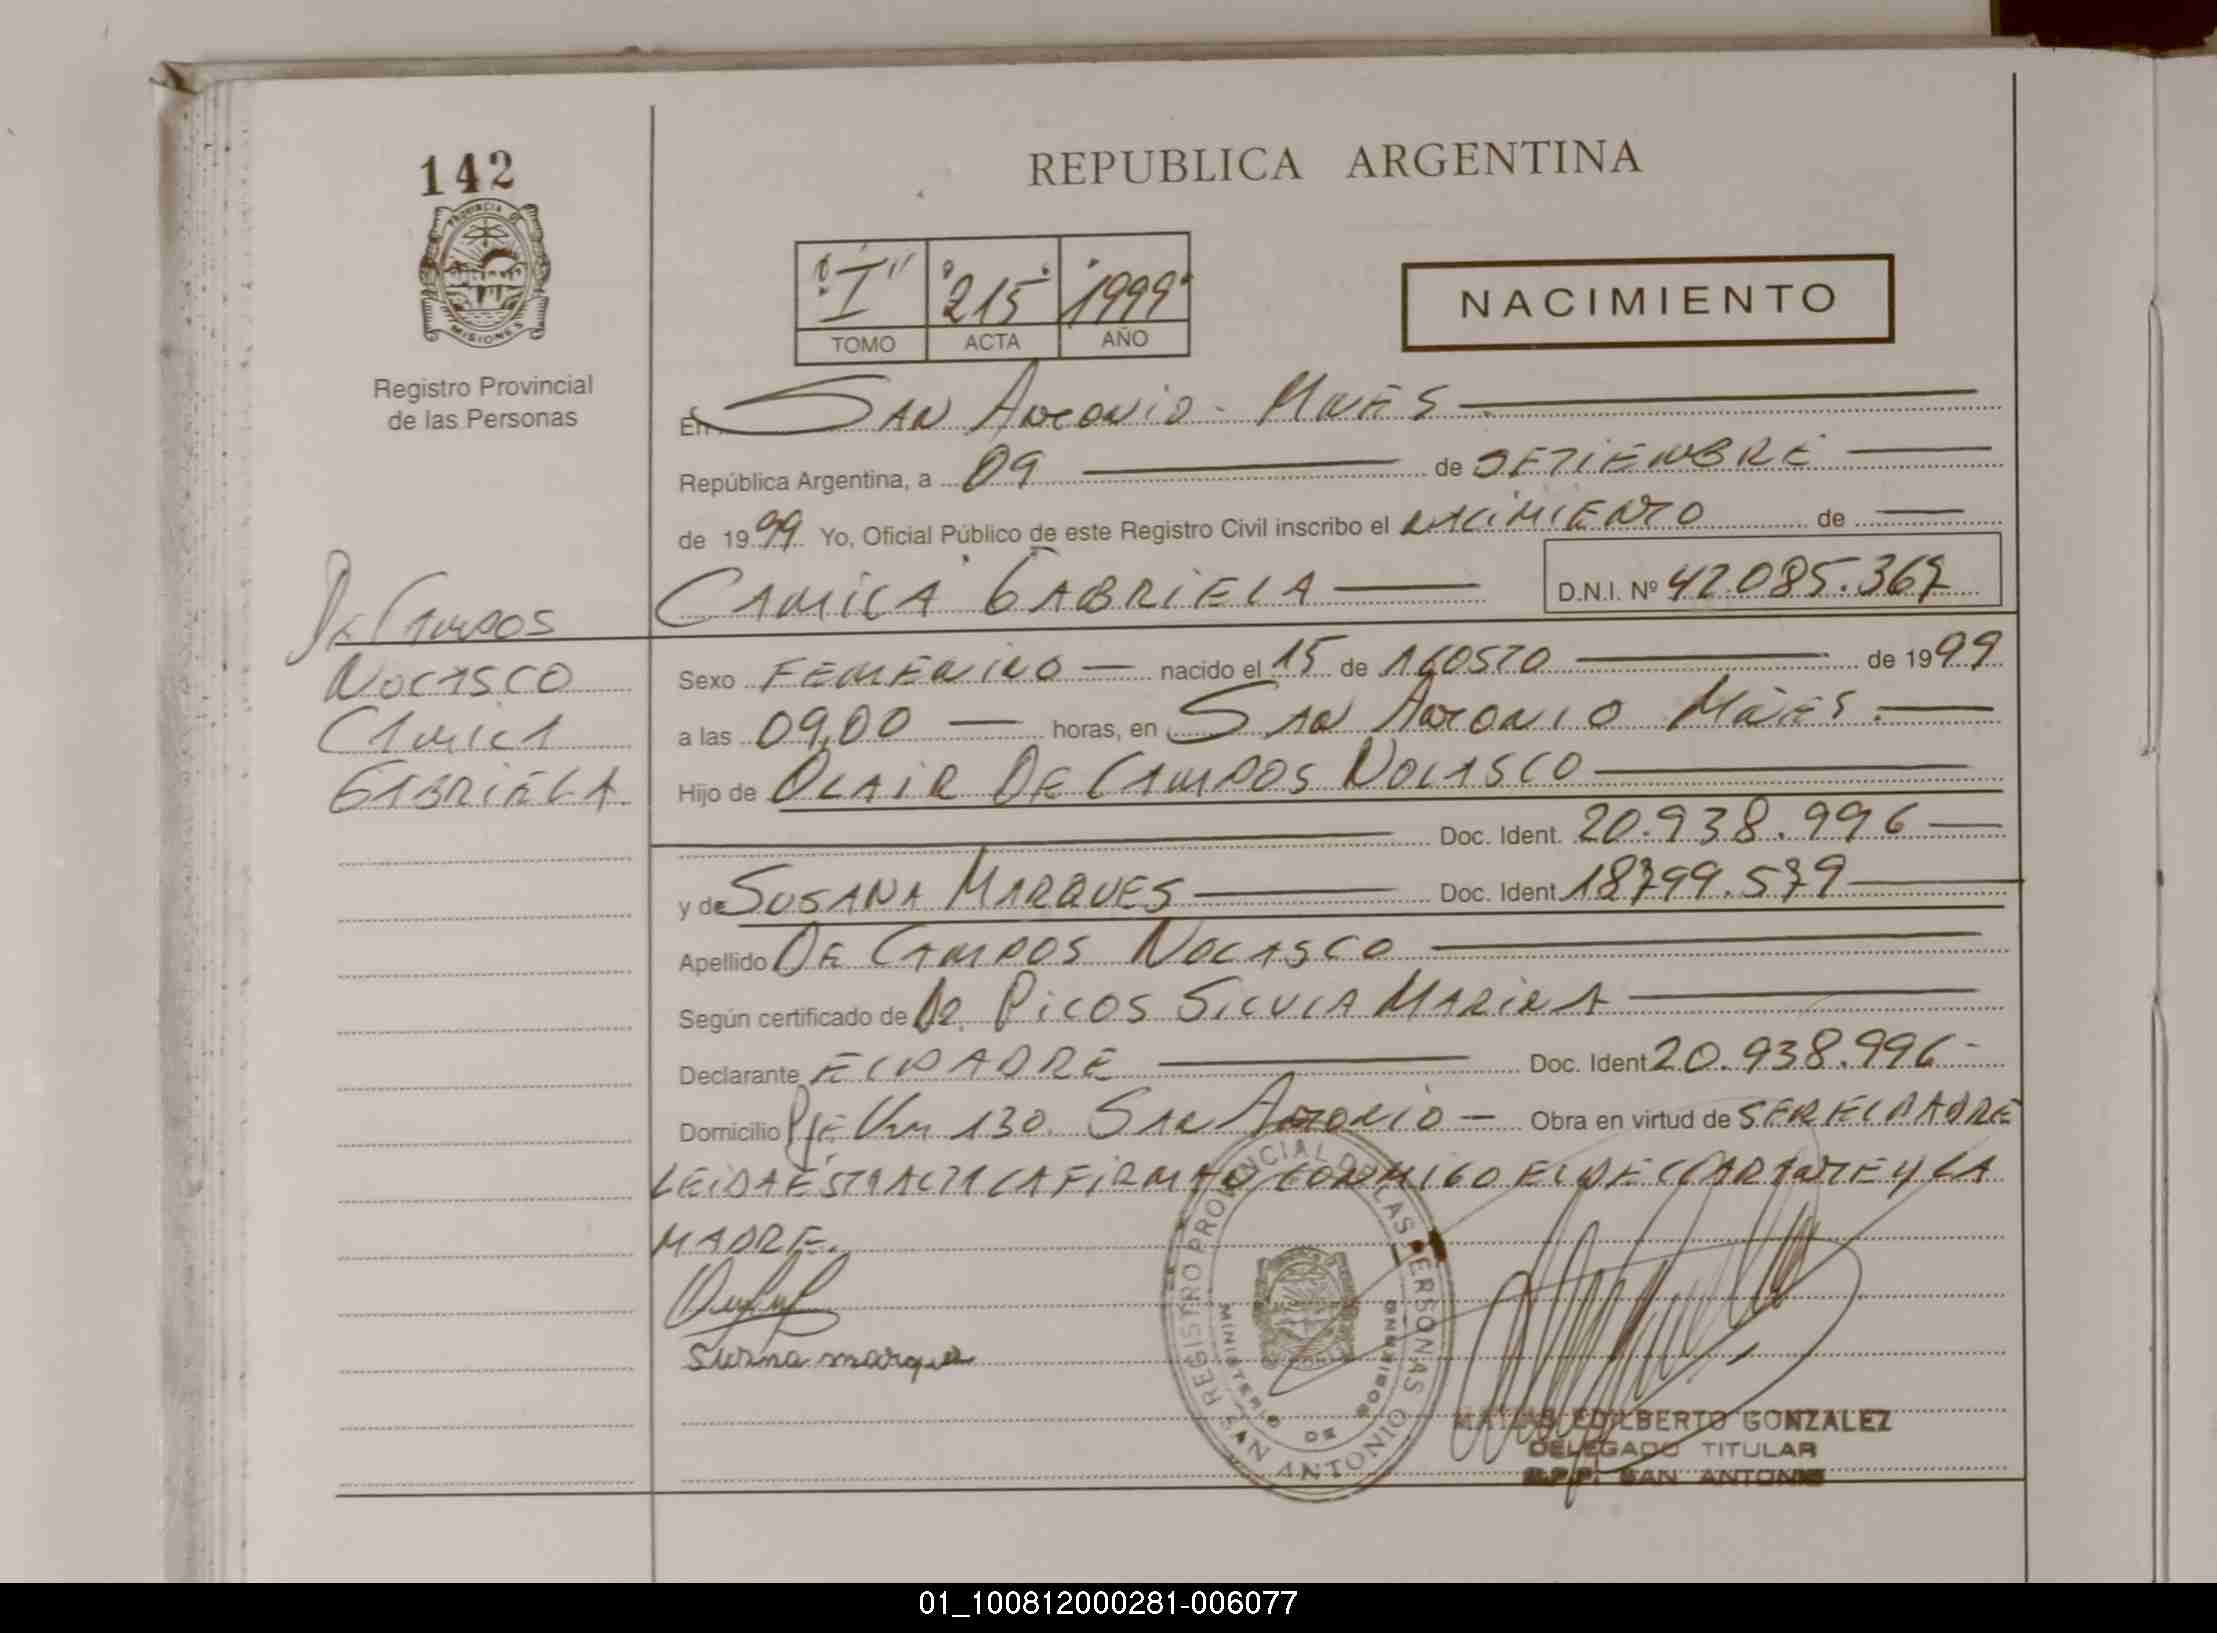 142
PROVINCIA DE
MISIONES
Registro Provincial
de las Personas
REPUBLICA ARGENTINA
"I" 215 1999
TOMO ACTA AÑO
NACIMIENTO
En SAN ANTONIO - MNES
República Argentina, a 09 de SETIEMBRE
de 1999 Yo, Oficial Público de este Registro Civil inscribo el NACIMIENTO de
CAMILA GABRIELA D.N.I. Nº 42.085.367
DE CAMPOS
NOLASCO
CAMILA
GABRIELA
Sexo FEMENINO nacido el 15 de AGOSTO de 1999
a las 09,00 horas, en SAN ANTONIO MNES.
Hijo de OLAIR DE CAMPOS NOLASCO
Doc. Ident. 20.938.996
y de SUSANA MARQUES Doc. Ident. 18799.579
Apellido DE CAMPOS NOLASCO
Según certificado de DR. PICOS SILVIA MARINA
Declarante EL PADRE Doc. Ident 20.938.996
Domicilio PJE Km 130. SAN ANTONIO - Obra en virtud de SER EL PADRE
LEIDA ESTA ACTA LA FIRMAN CONMIGO EL DECLARANTE Y LA
MADRE.
Susana marques
REGISTRO PROVINCIAL DE LAS PERSONAS
MINISTERIO DE GOBIERNO
SAN ANTONIO
MATIAS EDILBERTO GONZALEZ
DELEGADO TITULAR
R.P.P. SAN ANTONIO
01_100812000281-006077